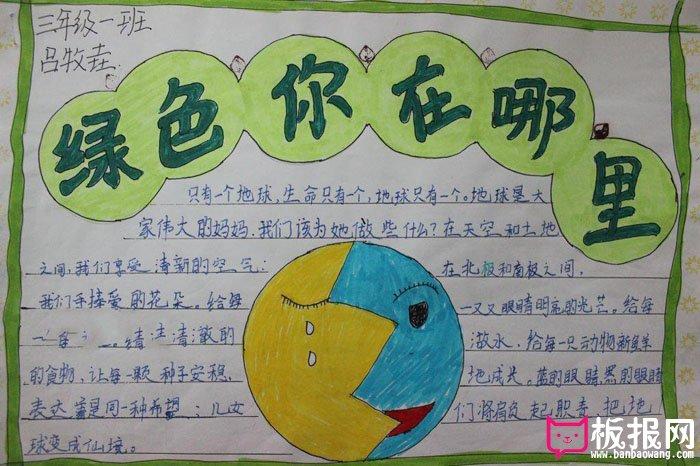 三年级一班
吕牧垚
绿色你在哪里
只有一个地球，生命只有一个，地球只有一个。地球是大
家伟大的妈妈，我们该为她做些什么？在天空和土地
之间，我们享受清新的空气；
在北极和南极之间，
我们手接爱的花朵。给每
一双又眼睛明亮的光芒。给每
清洁清澈的
澈水，给每一只动物新鲜
的食物，让每一颗种子安稳
地成长。蓝的眼睛，黑的眼睛
表达着是同一种希望：儿女
们将肩负起职责，把地
球变成仙境。
板报网
www.banbaowang.com